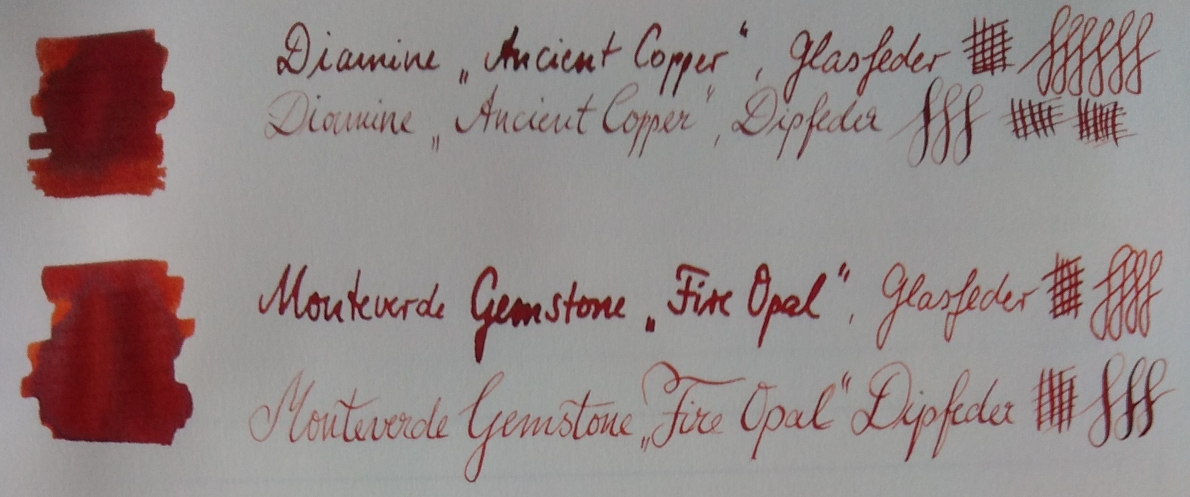 Diamine „Ancient Copper“, Glasfeder
Diamine „Ancient Copper“, Dipfeder
Monteverde Gemstone „Fire Opal“, Glasfeder
Monteverde Gemstone „Fire Opal“ Dipfeder